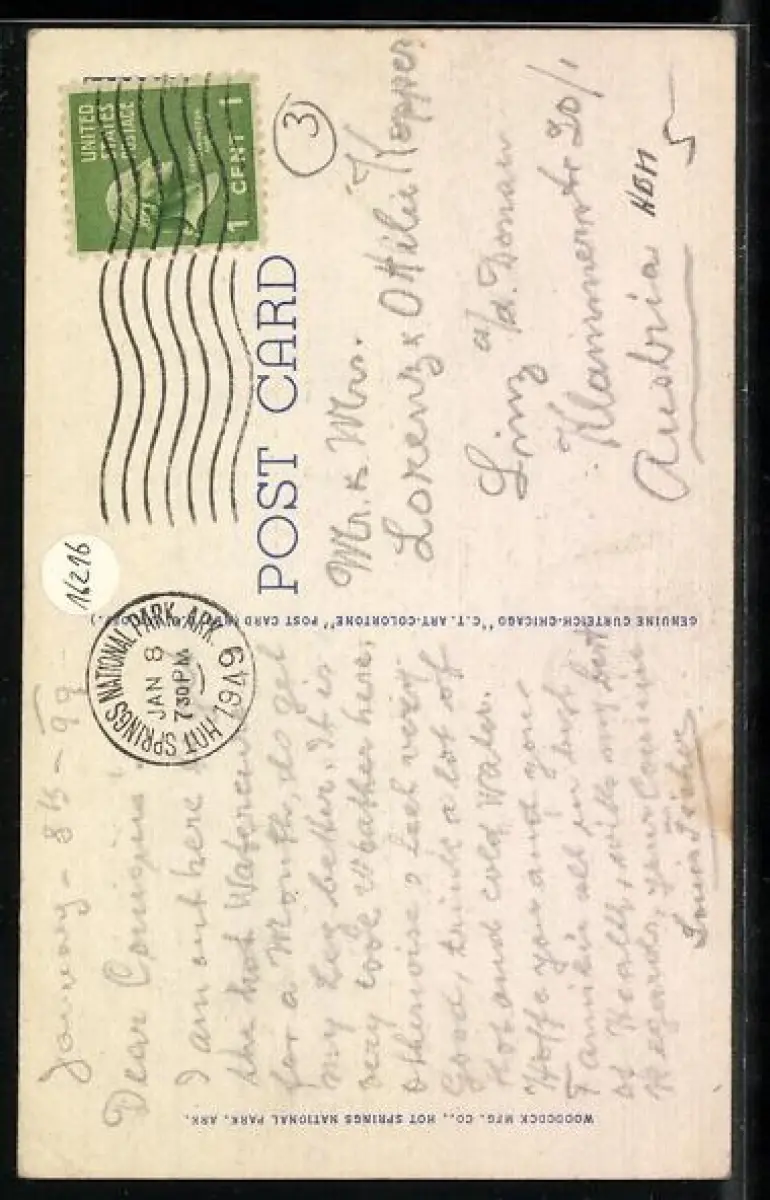 January - 8th - 49
Dear Cousins
I am out here
the hot Watercure
for a Month, do get
my Leg better. It is
very cool Weather here,
otherwise, I feel very
Good, drink a lot of
Hot and cold Water.
Hoffe you and your
Familie all in best
of Health, with my best
Regards, your Cousine
WOODCOCK MFG. CO., HOT SPRINGS NATIONAL PARK, ARK.
GENUINE CURTEICH-CHICAGO "C.T. ART-COLORTONE" POST CARD
POST CARD
UNITED
STATES
POSTAGE
1 CENT 1
HOT SPRINGS NATIONAL PARK, ARK.
JAN 8
7 30 PM
1949
16216
3
Mr. & Mrs.
Lorenz & Ottilie Kopper
Linz a/d. Donau
Klammerstr 20/1
Austria